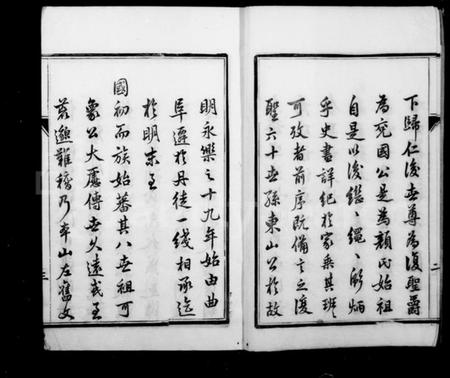 下歸仁後世尊為復聖爵
為兗國公是為顏氏始祖
自是以後繩繩彪炳
乎史書詳紀於家乘其班
可攷者前序既備言之復
聖六十世孫東山公於故
二
明永樂之十九年始由曲
阜遷於丹徒一綫相承迄
於明末至
國初而族始蕃其八世祖可
象公大廈傳世久遠或至
三